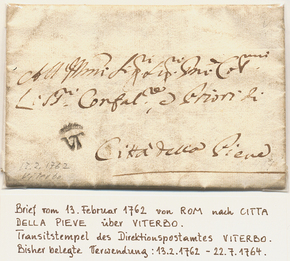 Li Sri: Confal.re e Priori di
VT
Città della Pieve
13.2.1762
Viterbo
Brief vom 13. Februar 1762 von ROM nach CITTA
DELLA PIEVE über VITERBO.
Transitstempel des Direktionspostamtes VITERBO.
Bisher belegte Verwendung: 13.2.1762 - 22.7.1764.